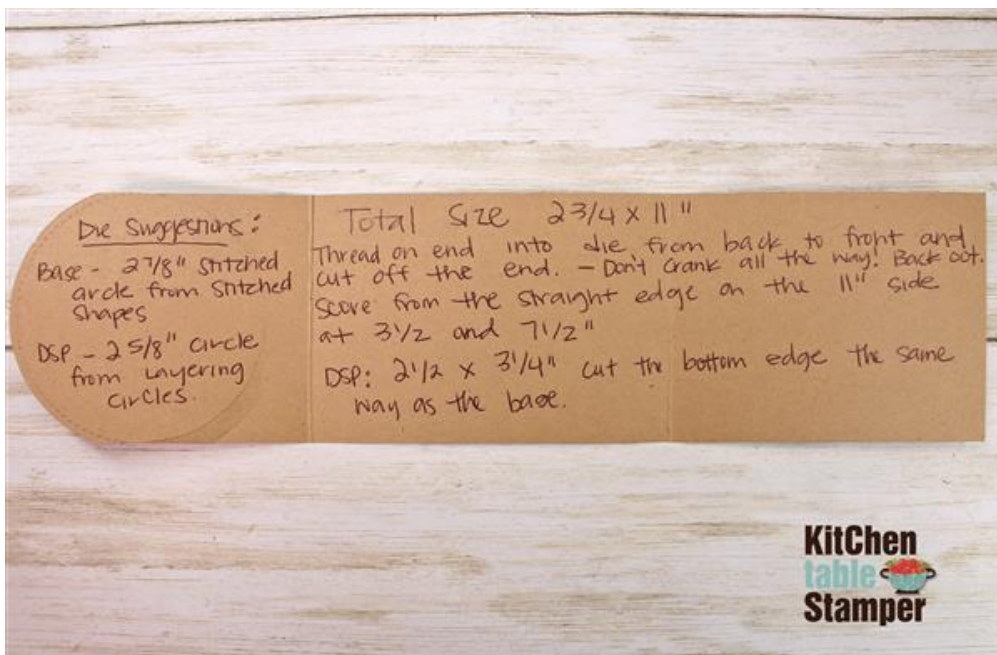 Die Suggestions:
Base - 2 7/8" Stitched
circle from Stitched
Shapes
DSP - 2 5/8" circle
from Layering
Circles.
Total Size 2 3/4 x 11"
Thread on end into die from back to front and
cut off the end. - Don't Crank all the way! Back out.
Score from the straight edge on the 11" side
at 3 1/2 and 7 1/2"
DSP: 2 1/2 x 3 1/4" cut the bottom edge the same
way as the base.
KitChen
table
Stamper